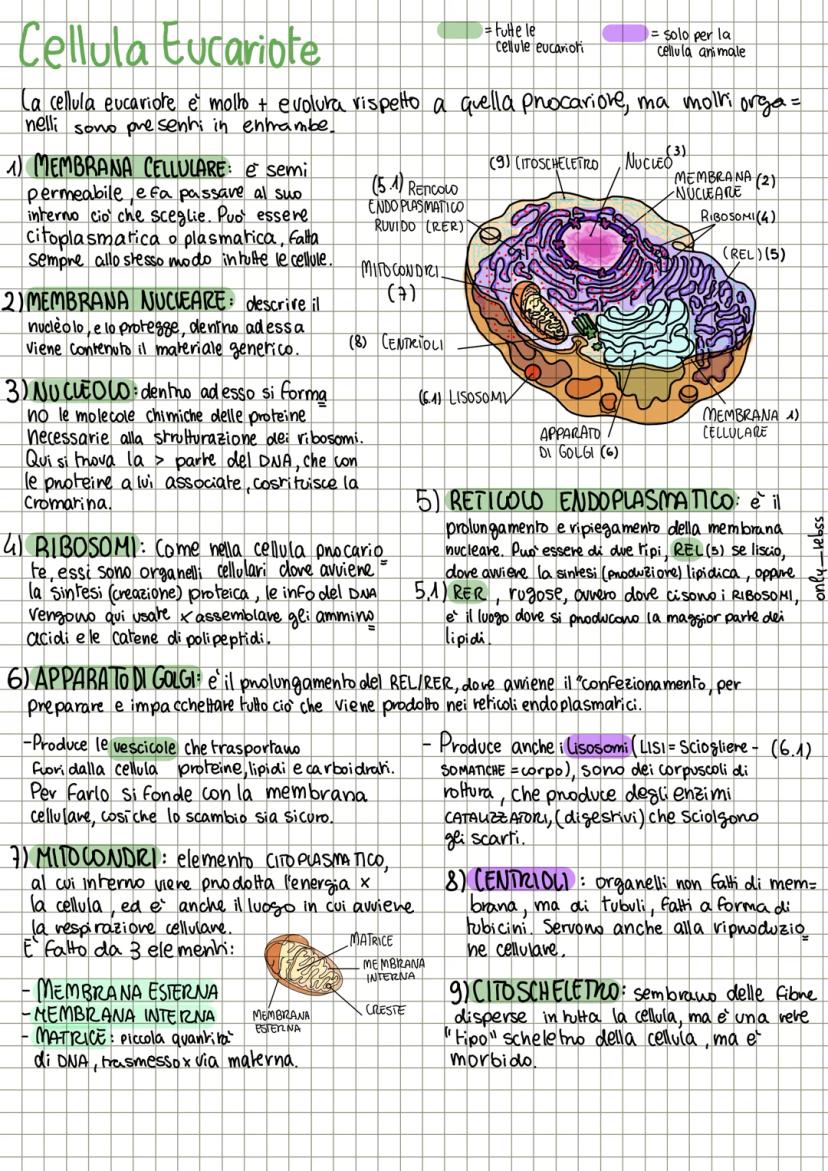 Cellula Eucariote
= tutte le
cellule eucarioti
= solo per la
cellula animale
La cellula eucariote è molto + evoluta rispetto a quella procariote, ma molti orga=
nelli sono presenti in entrambe.
1) MEMBRANA CELLULARE: è semi
permeabile, e fa passare al suo
interno ciò che sceglie. Può essere
citoplasmatica o plasmatica, fatta
sempre allo stesso modo in tutte le cellule.
2) MEMBRANA NUCLEARE: descrive il
nuclèolo, e lo protegge, dentro ad essa
viene contenuto il materiale genetico.
3) NUCLÈOLO: dentro ad esso si forma
no le molecole chimiche delle proteine
necessarie alla strutturazione dei ribosomi.
Qui si trova la > parte del DNA, che con
le proteine a lui associate, costituisce la
Cromatina.
4) RIBOSOMI: Come nella cellula procario
te, essi sono organelli cellulari dove avviene
la sintesi (creazione) proteica, le info del DNA
vengono qui usate x assemblare gli ammino
acidi e le catene di polipeptidi.
(9) CITOSCHELETRO
NUCLEO (3)
MEMBRANA (2)
NUCLEARE
RIBOSOMI (4)
(REL) (5)
(5.1) RETICOLO
ENDOPLASMATICO
RUVIDO (RER)
MITOCONDRI
(7)
(8) CENTRÌOLI
(6.1) LISOSOMI
APPARATO
DI GOLGI (6)
MEMBRANA 1)
CELLULARE
5) RETICOLO ENDOPLASMATICO: è il
prolungamento e ripiegamento della membrana
nucleare. Può essere di due tipi, REL (5) se liscio,
dove avviene la sintesi (produzione) lipidica, oppure
5.1) RER, rugose, ovvero dove ci sono i RIBOSOMI,
e' il luogo dove si producono la maggior parte dei
lipidi.
only__hebss
6) APPARATO DI GOLGI: è il prolungamento del REL/RER, dove avviene il "confezionamento, per
preparare e impacchettare tutto ciò che viene prodotto nei reticoli endoplasmatici.
-Produce le vescicole che trasportano
fuori dalla cellula proteine, lipidi e carboidrati.
Per farlo si fonde con la membrana
cellulare, così che lo scambio sia sicuro.
- Produce anche i lisosomi (LISI = Sciogliere - (6.1)
SOMATICHE = corpo), sono dei corpuscoli di
rottura, che produce degli enzimi
CATALIZZATORI, (digestivi) che sciolgono
gli scarti.
7) MITOCONDRI: elemento CITOPLASMATICO,
al cui interno viene prodotta l'energia x
la cellula, ed è anche il luogo in cui avviene
la respirazione cellulare.
E' fatto da 3 elementi:
- MEMBRANA ESTERNA
- MEMBRANA INTERNA
- MATRICE: piccola quantità
di DNA, trasmesso x via materna.
MATRICE
MEMBRANA
INTERNA
CRESTE
MEMBRANA
ESTERNA
8) CENTRIOLI: organelli non fatti di mem=
brana, ma di tubuli, fatti a forma di
tubicini. Servono anche alla riproduzio
ne cellulare.
9) CITOSCHELETRO: sembrano delle fibre
disperse in tutta la cellula, ma è una rete
"tipo" scheletro della cellula, ma è
morbido.